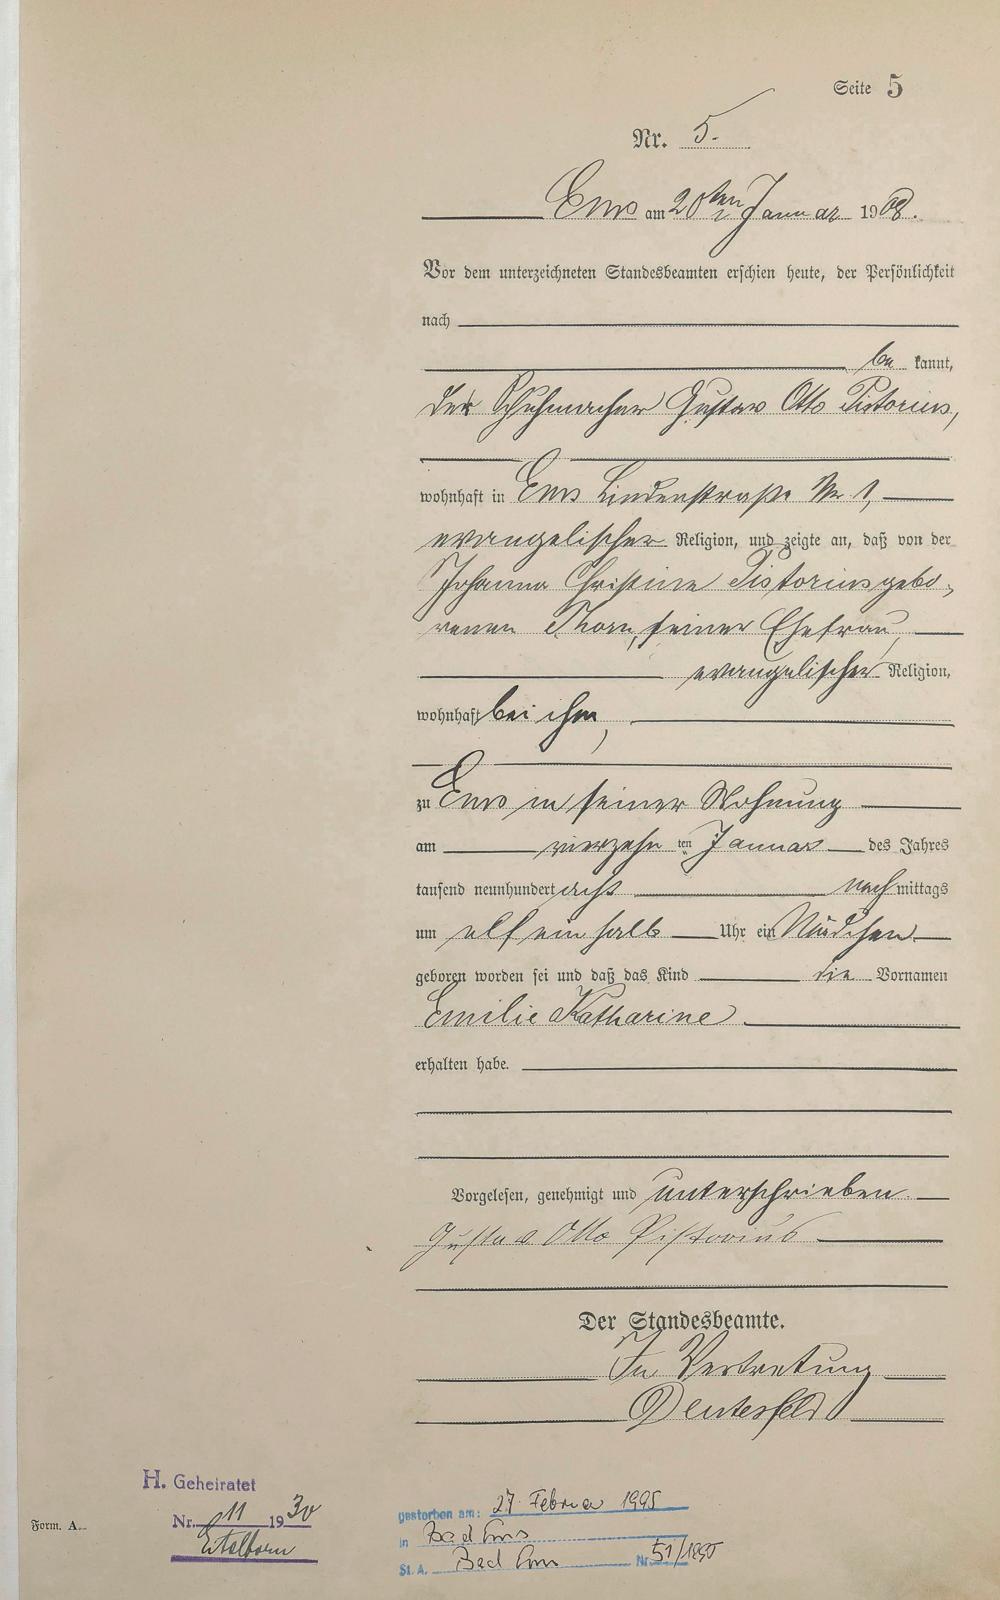 Seite 5
Nr. 5.
Ems am 20ten Januar 1908.
Vor dem unterzeichneten Standesbeamten erschien heute, der Persönlichkeit
nach
be kannt,
der Schuhmacher Gustav Otto Pistorius,
wohnhaft in Ems Lindenstraße Nr 1,
evangelischer Religion, und zeigte an, daß von der
Johanna Christine Pistorius gebo-
renen Korn, seiner Ehefrau,
evangelischer Religion,
wohnhaft bei ihm,
zu Ems in seiner Wohnung
am vierzehn ten Januar des Jahres
tausend neunhundert acht nach mittags
um elf ein halb Uhr ein Mädchen
geboren worden sei und daß das Kind die Vornamen
Emilie Katharine
erhalten habe.
Vorgelesen, genehmigt und unterschrieben.
Gustav Otto Pistorius
Der Standesbeamte.
In Vertretung
H. Geheiratet
Nr. 11 1930
gestorben am: 27. Februar 1995
in Bad Ems
St. A. Bad Ems Nr. 51/1995
Form. A.